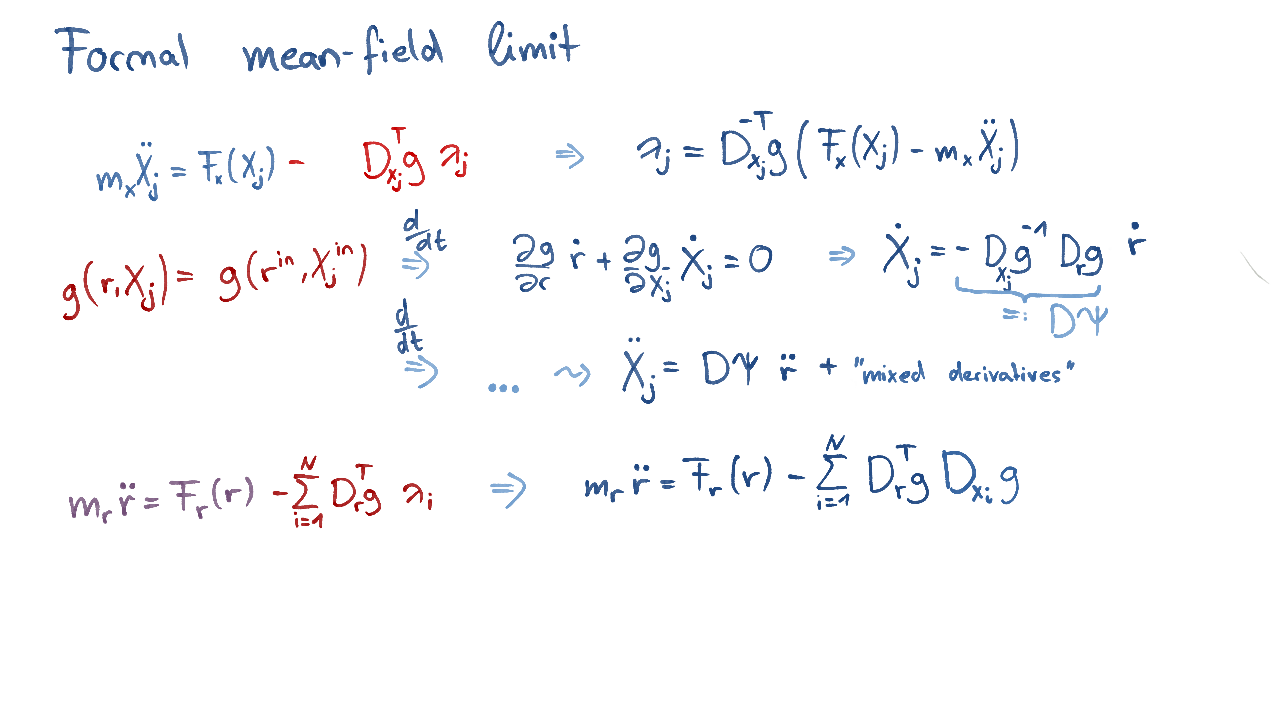 Formal mean-field limit
m_x Ẍ_j = F_x(X_j) - D_{x_j}^T g λ_j ⇒ λ_j = D_{x_j}^{-T} g ( F_x(X_j) - m_x Ẍ_j )
g(r, X_j) = g(r^{in}, X_j^{in}) d/dt ⇒ ∂g/∂r ṙ + ∂g/∂X_j Ẋ_j = 0 ⇒ Ẋ_j = - D_{x_j} g^{-1} D_r g ṙ
=: DΨ
d/dt ⇒ ... ⇝ Ẍ_j = DΨ r̈ + "mixed derivatives"
m_r r̈ = F_r(r) - ∑_{i=1}^N D_r^T g λ_i ⇒ m_r r̈ = F_r(r) - ∑_{i=1}^N D_r^T g D_{x_i} g